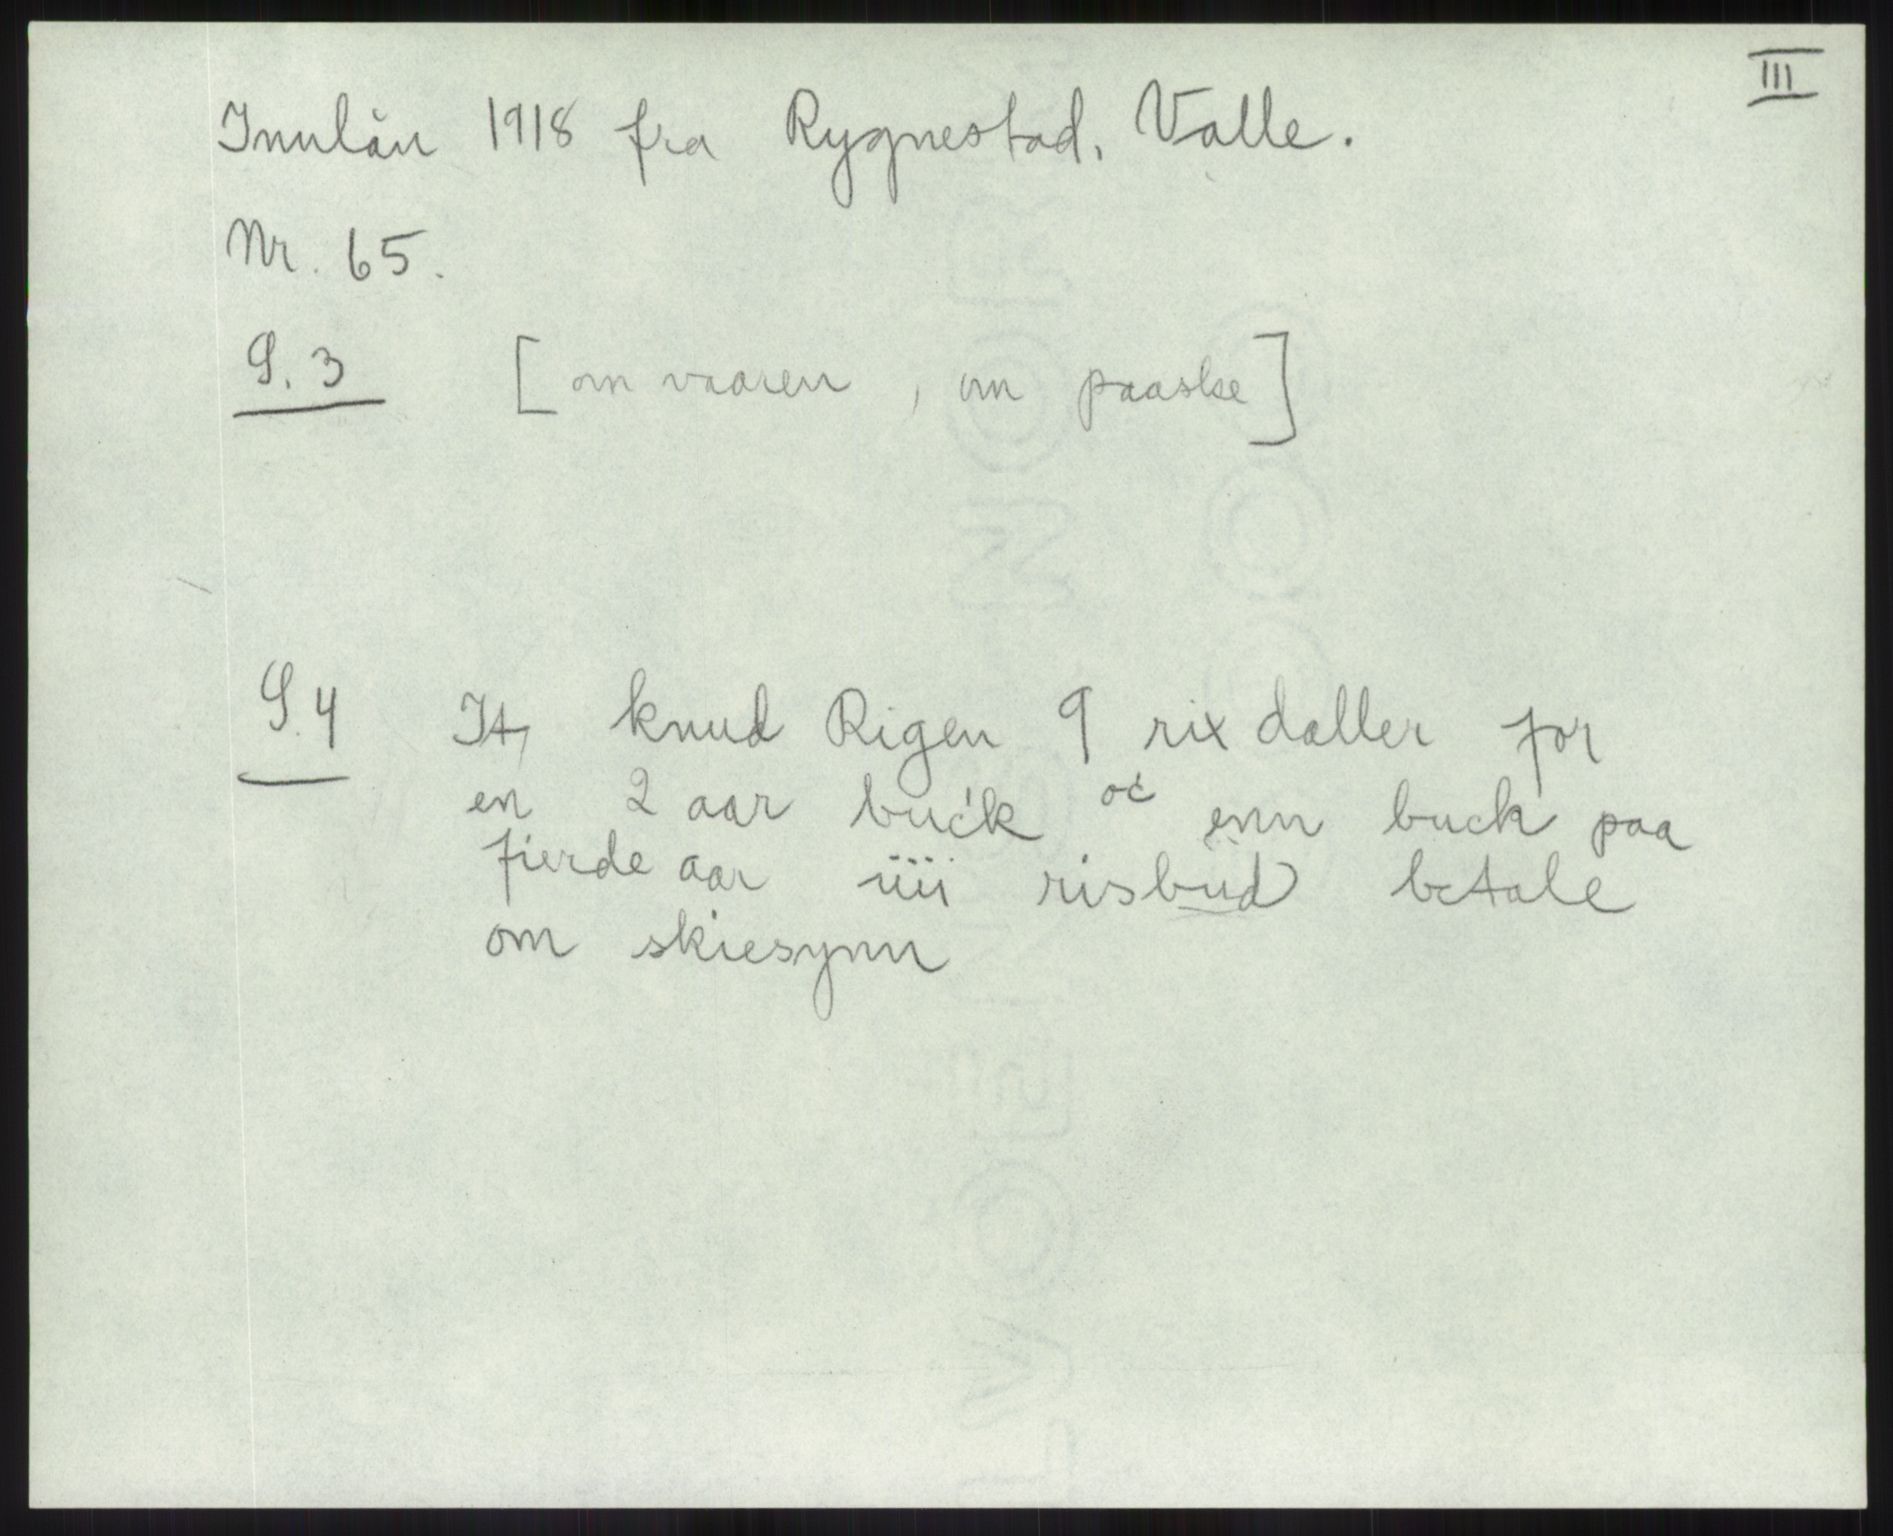 III
Innlån 1918 fra Rygnestad, Valle.
Nr. 65.
S. 3 [om vaaren , om paaske]
S. 4 It, knud Rigen 9 rix daller for
en 2 aar buck oc enn buck paa
fierde aar iiii risbud betale
om skiesynn